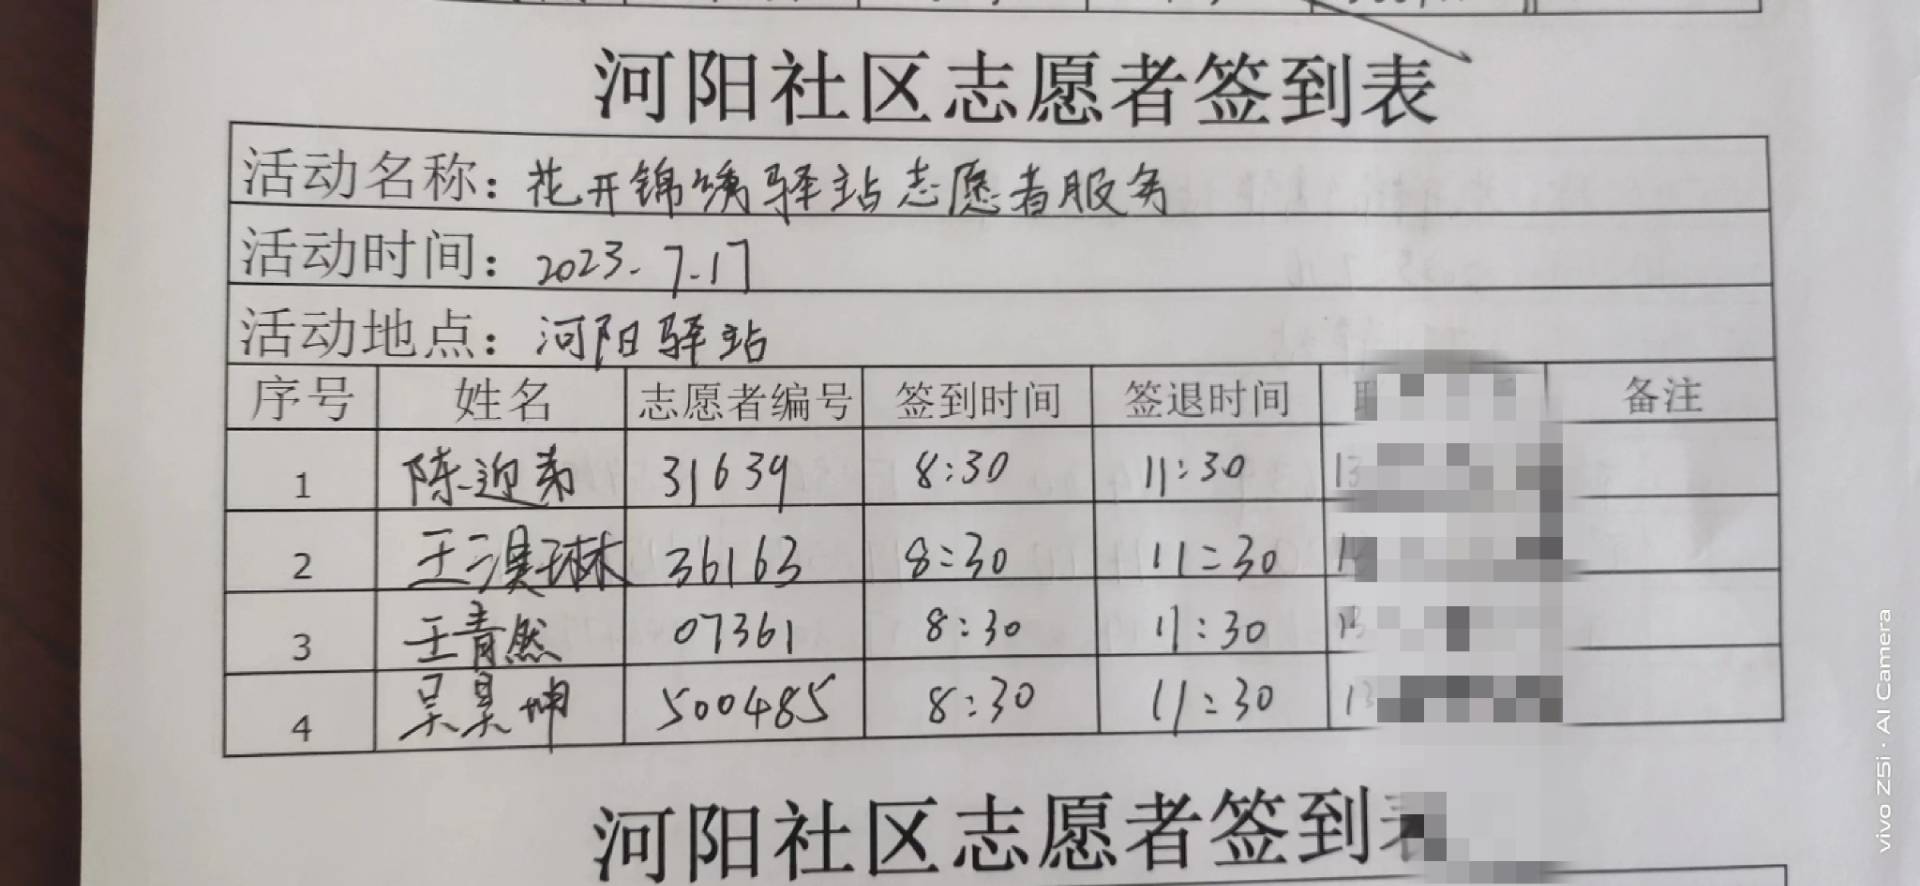 河阳社区志愿者签到表
活动名称：花开锦绣驿站志愿者服务
活动时间：2023.7.17
活动地点：河阳驿站
序号 姓名 志愿者编号 签到时间 签退时间 联 备注
1 陈迎弟 31639 8:30 11:30 13
2 王淏琳 36163 8:30 11:30
3 王青然 07361 8:30 11:30 13
4 吴昊坤 500485 8:30 11:30 13
河阳社区志愿者签到表
vivo Z5i · AI Camera